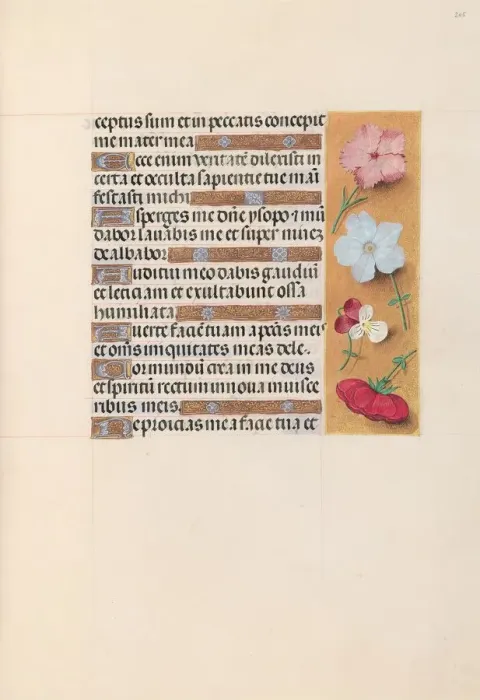 205
ceptus sum et in peccatis concepit
me mater mea
Ecce enim veritatē dilexisti in
certa et occulta sapientie tue māi
festasti michi
Asperges me dn̄e ysopo ⁊ mū
dabor lauabis me et super niuez
dealbabor
Auditui meo dabis gaudiū
et leticiam et exultabunt ossa
humiliata
Auerte faciē tuam a pctīs meis
et om̄s iniquitates meas dele.
Cor mundū crea in me deus
et spiritū rectum innoua in visce
ribus meis.
Ne proicias me a facie tua et